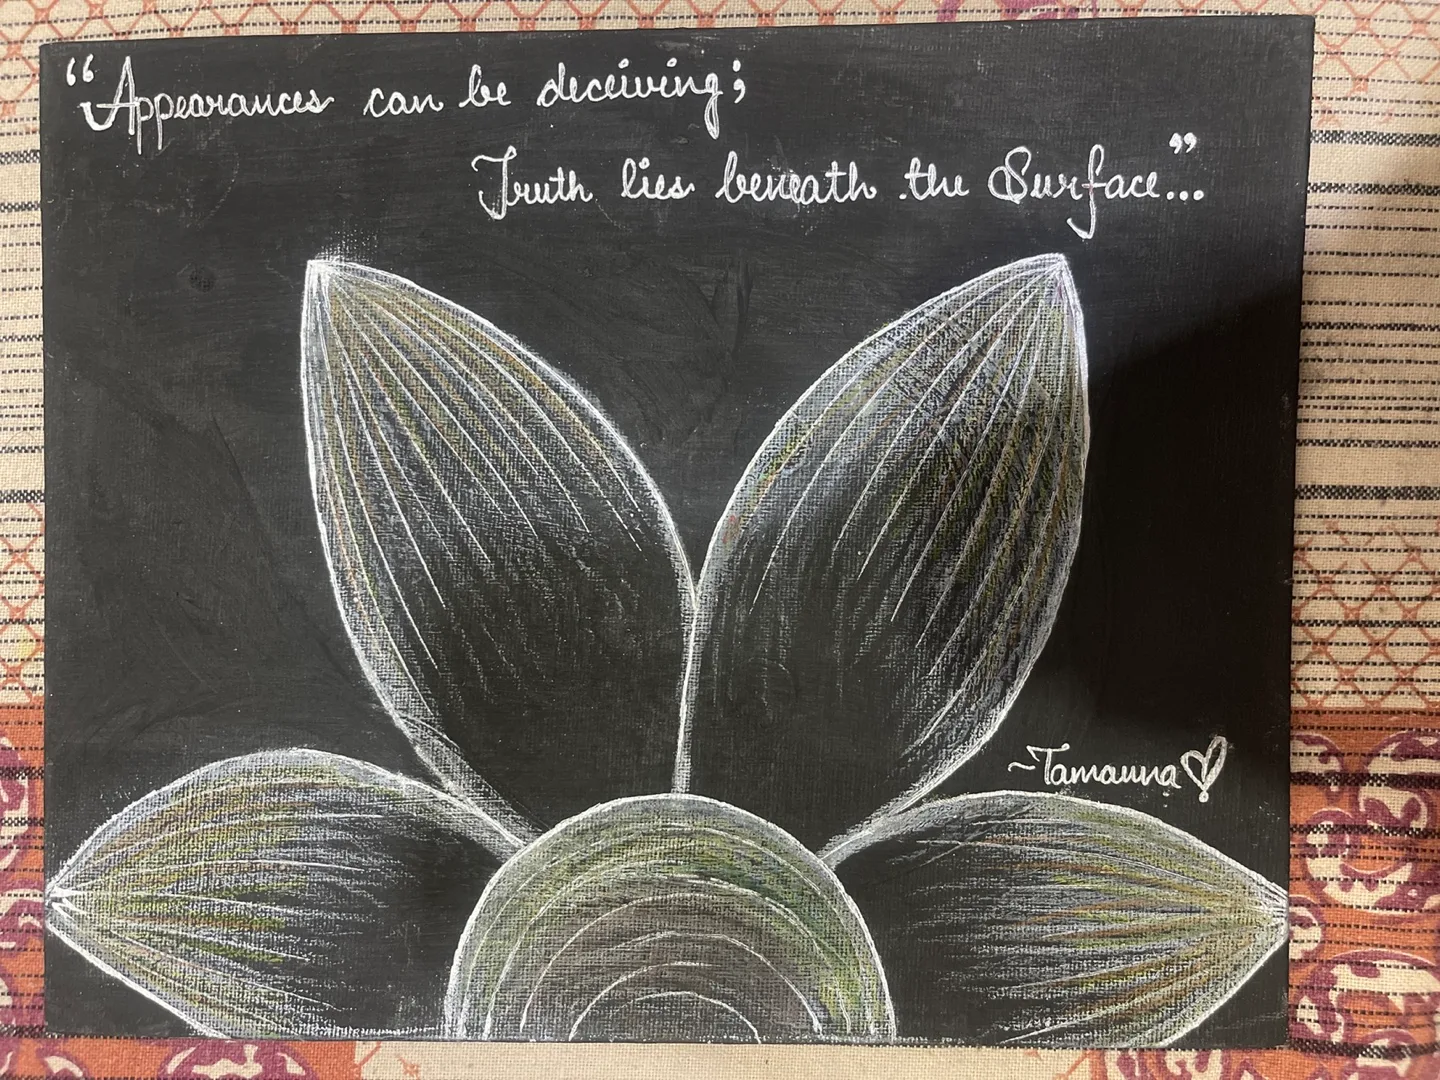 “Appearances can be deceiving;
Truth lies beneath the Surface...”
~Tamanna